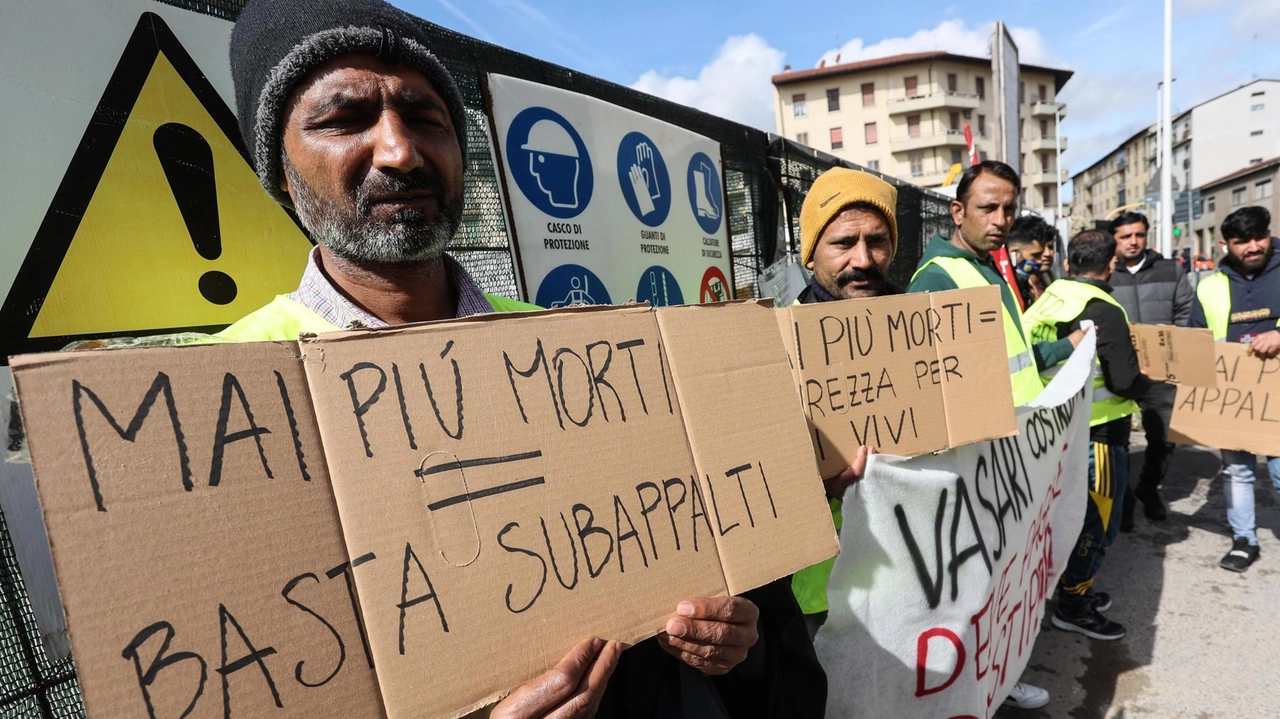 CASCO DI
PROTEZIONE
GUANTI DI
PROTEZIONE
CALZATURE
DI SICUREZZA
MAI PIÚ MORTI
=
BASTA SUBAPPALTI
I PIÙ MORTI =
REZZA PER
I VIVI
VASARI COSTRU
DEVE
AI P
APPAL